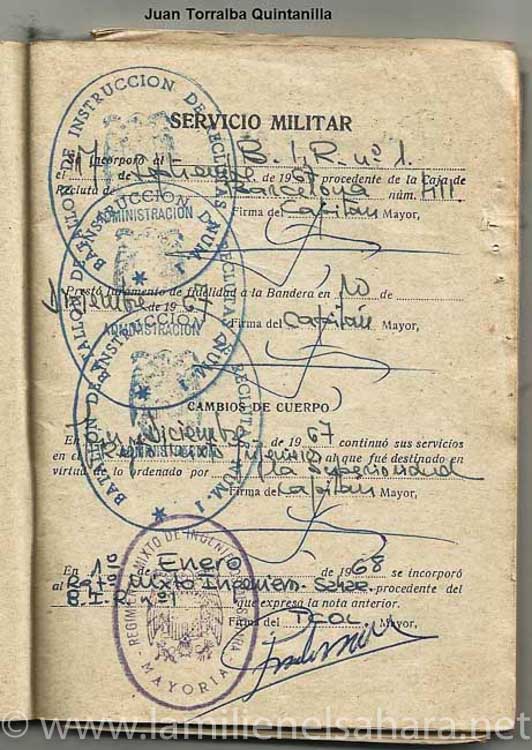 Juan Torralba Quintanilla
SERVICIO MILITAR
Se incorporó al B. I. R. nº 1.
el 17 de 1967 procedente de la Caja de
Recluta de Barcelona núm. 411.
Firma del Capitán Mayor,
Prestó juramento de fidelidad a la Bandera en 10 de
Diciembre de 1967
Firma del Capitán Mayor,
CAMBIOS DE CUERPO
En Diciembre de 1967 continuó sus servicios
en el Mixto al que fué destinado en
virtud de lo ordenado por la Superioridad
Firma del Capitán Mayor,
En 1º de Enero de 1968 se incorporó
al Mixto procedente del
B. I. R. nº 1 que expresa la nota anterior.
Firma del TCOL. Mayor,
BATALLON DE INSTRUCCION DE RECLUTAS NUM. 1
ADMINISTRACIÓN
BATALLON DE INSTRUCCION DE RECLUTAS NUM. 1
ADMINISTRACIÓN
BATALLON DE INSTRUCCION DE RECLUTAS NUM. 1
REGIMIENTO MIXTO DE
MAYORIA
© www.lamilienelsahara.net